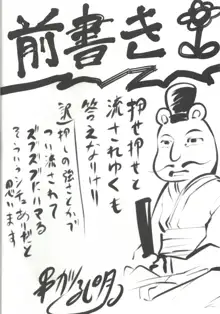 前書き
押せ押せと
流されゆくも
答えなりけり
訳 押しの強さとかで
つい流されて
ズブズブにハマる
そういうシチュもありだと
思います